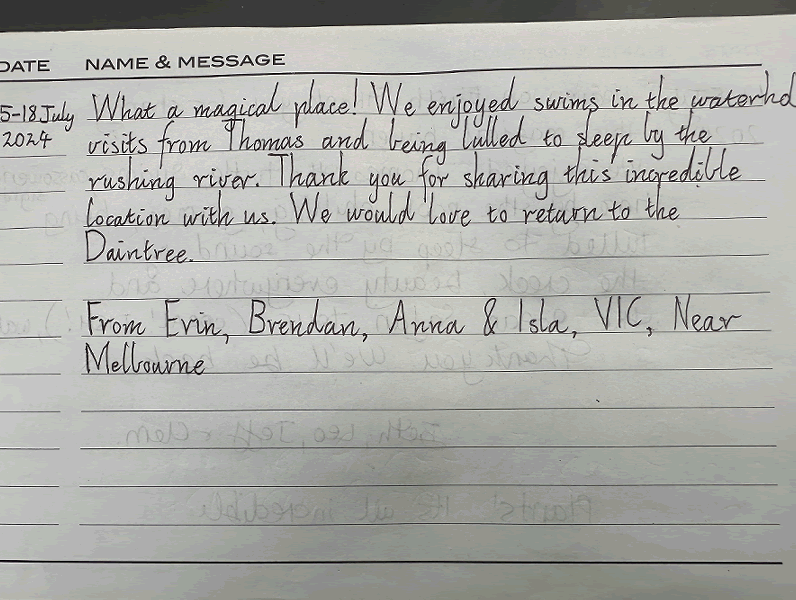 DATE NAME & MESSAGE
5-18 July What a magical place! We enjoyed swims in the waterho
2024 visits from Thomas and being lulled to sleep by the
rushing river. Thank you for sharing this incredible
location with us. We would love to return to the
Daintree.
From Erin, Brendan, Anna & Isla, VIC, Near
Melbourne